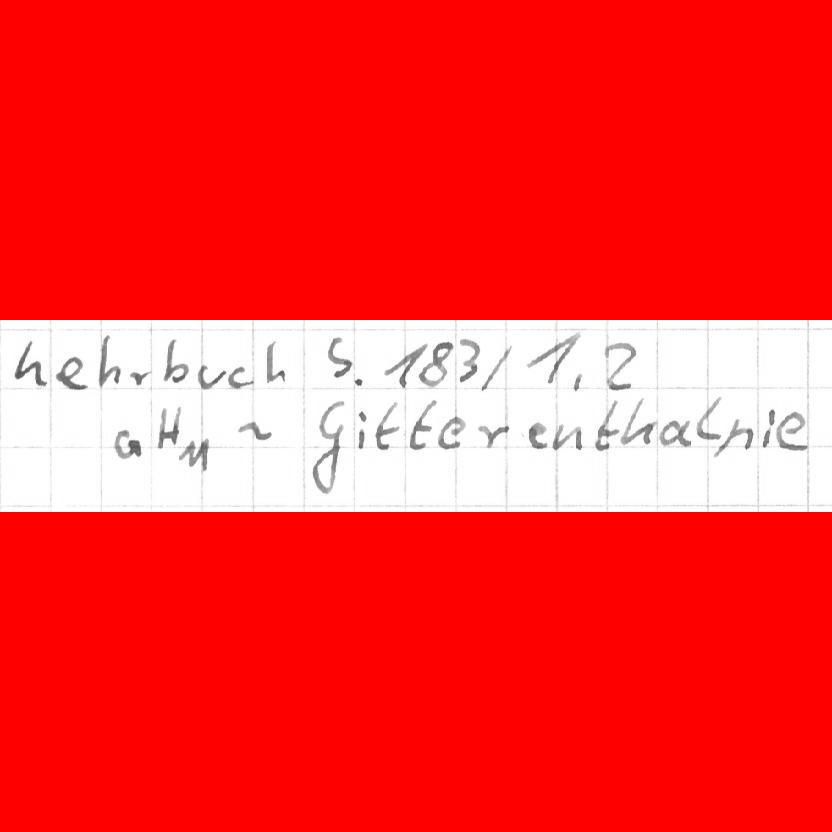 Lehrbuch S. 183/ 1, 2
GHM ~ Gitterenthalpie